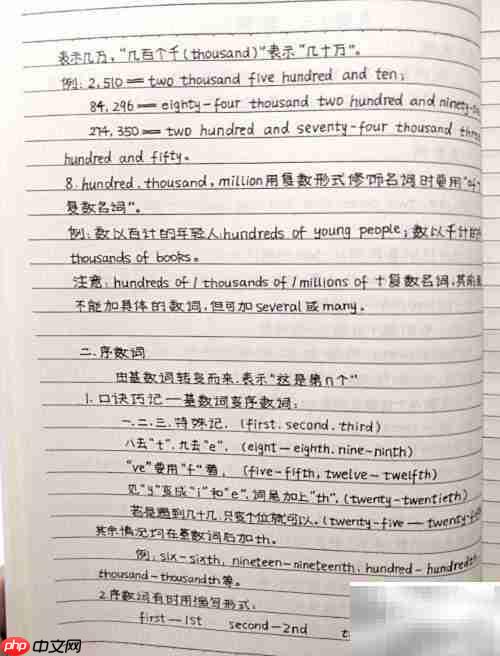 表示几万,"几百个千(thousand)"表示"几十万"。
例:2,510 — two thousand five hundred and ten;
84,296 — eighty-four thousand two hundred and
274,350 — two hundred and seventy-four thousand
hundred and fifty。
8. hundred, thousand, million用复数形式修饰名词时要用"of+
复数名词"。
例:数以百计的年轻人:hundreds of young people;数以千计的
thousands of books。
注意:hundreds of / thousands of / millions of +复数名词,其前
不能加具体的数词,但可加several或many。
二.序数词
由基数词转变而来.表示"这是第n个"
1. 口诀巧记—基数词变序数词:
一.二.三.特殊记,(first.second.third)
八去"t".九去"e",(eight—eighth.nine-ninth)
"ve"要用"f"替,(five-fifth,twelve-twelfth)
见"y"变成"i"和"e",词尾加上"th".(twenty-twentieth)
若是遇到几十几.只变个位就可以.(twenty-five—
其余情况均在基数词后加th。
例:six-sixth, nineteen-nineteenth, hundred-hundredth
thousand-thousandth等。
2.序数词有时用缩写形式:
first—1st second—2nd
php 中文网